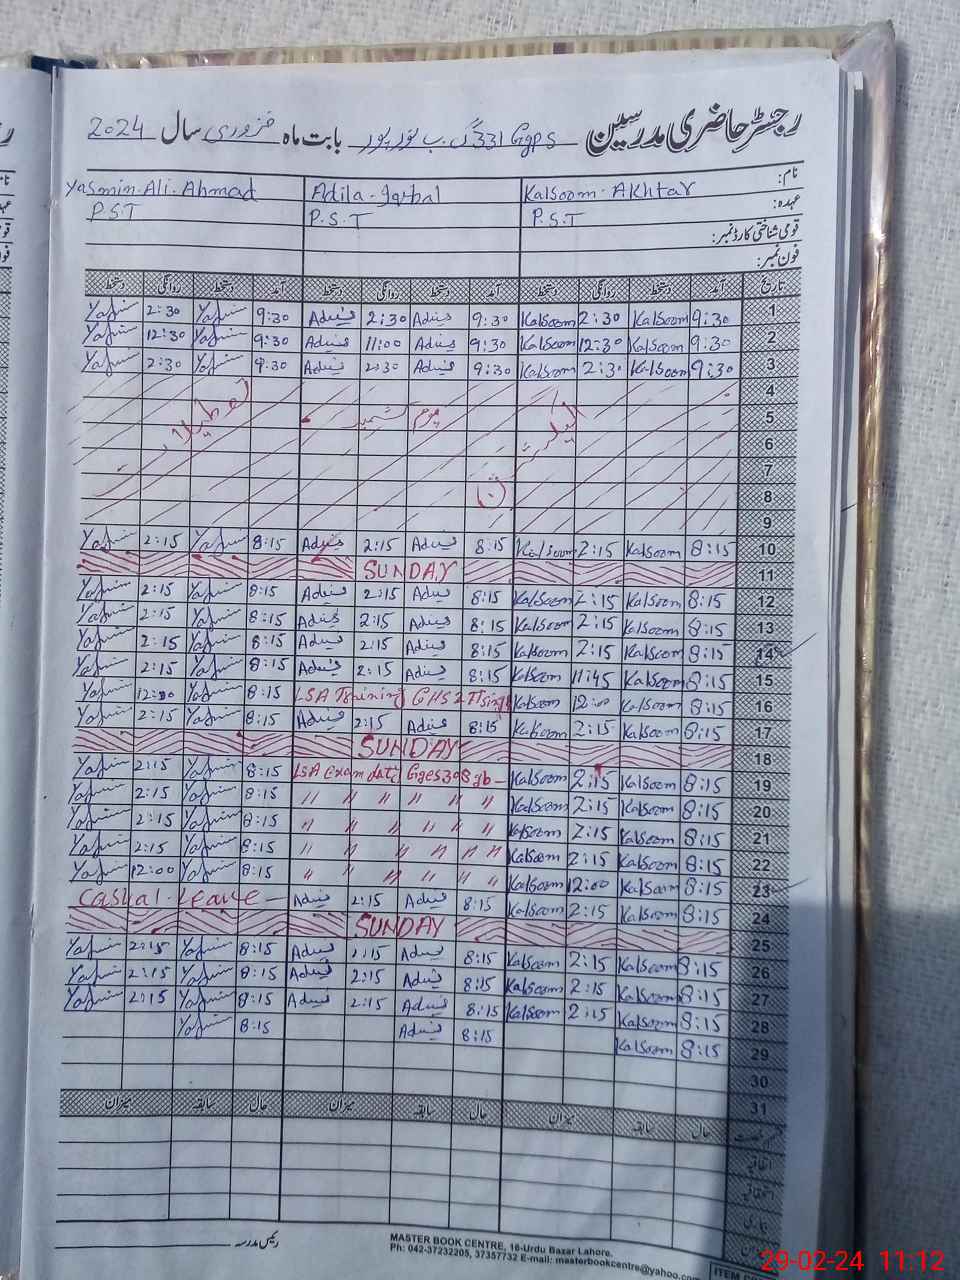 رجسٹر حاضری مدرسین Ggps 331 گ ب نورپور بابت ماہ فروری سال 2024
نام: Kalsoom Akhtar Adila Iqbal Yasmin Ali Ahmad
عہدہ: P.S.T P.S.T P.S.T
قومی شناختی کارڈ نمبر:
فون نمبر:
تاریخ آمد دستخط روانگی دستخط آمد دستخط روانگی دستخط آمد دستخط روانگی دستخط
1 9:30 Kalsoom 2:30 Kalsoom 9:30 2:30 9:30 2:30
2 9:30 Kalsoom 12:30 Kalsoom 9:30 11:00 9:30 12:30
3 9:30 Kalsoom 2:30 Kalsoom 9:30 2:30 9:30 2:30
4
5 الیکشن یوم کشمیر تعطیلات
6
7
8
9
10 8:15 Kalsoom 2:15 Kalsoom 8:15 2:15 8:15 2:15
11 SUNDAY
12 8:15 Kalsoom 2:15 Kalsoom 8:15 2:15 8:15 2:15
13 8:15 Kalsoom 2:15 Kalsoom 8:15 2:15 8:15 2:15
14 8:15 Kalsoom 2:15 Kalsoom 8:15 2:15 8:15 2:15
15 8:15 Kalsoom 11:45 Kalsoom 8:15 2:15 8:15 2:15
16 8:15 Kalsoom 12:00 Kalsoom LSA Training GHS 8:15 12:00
17 8:15 Kalsoom 2:15 Kalsoom 8:15 2:15 8:15 2:15
18 SUNDAY
19 8:15 Kalsoom 2:15 Kalsoom LSA Exam duti Gges 308 gb 8:15 2:15
20 8:15 Kalsoom 2:15 Kalsoom " " " " " " 8:15 2:15
21 8:15 Kalsoom 2:15 Kalsoom " " " " " " 8:15 2:15
22 8:15 Kalsoom 2:15 Kalsoom " " " " " " 8:15 2:15
23 8:15 Kalsoom 12:00 Kalsoom " " " " " " 8:15 12:00
24 8:15 Kalsoom 2:15 Kalsoom 8:15 2:15 Casual Leave
25 SUNDAY
26 8:15 Kalsoom 2:15 Kalsoom 8:15 2:15 8:15 2:15
27 8:15 Kalsoom 2:15 Kalsoom 8:15 2:15 8:15 2:15
28 8:15 Kalsoom 2:15 Kalsoom 8:15 2:15 8:15 2:15
29 8:15 Kalsoom 8:15 8:15
30
31
حال سابقہ میزان حال سابقہ میزان حال سابقہ میزان
اتفاقیہ
استحقاقیہ
بیماری
رئیس مدرسہ
MASTER BOOK CENTRE, 16-Urdu Bazar Lahore.
Ph: 042-37232205, 37357732 E-mail: masterbookcentre@yahoo.com
29-02-24 11:12